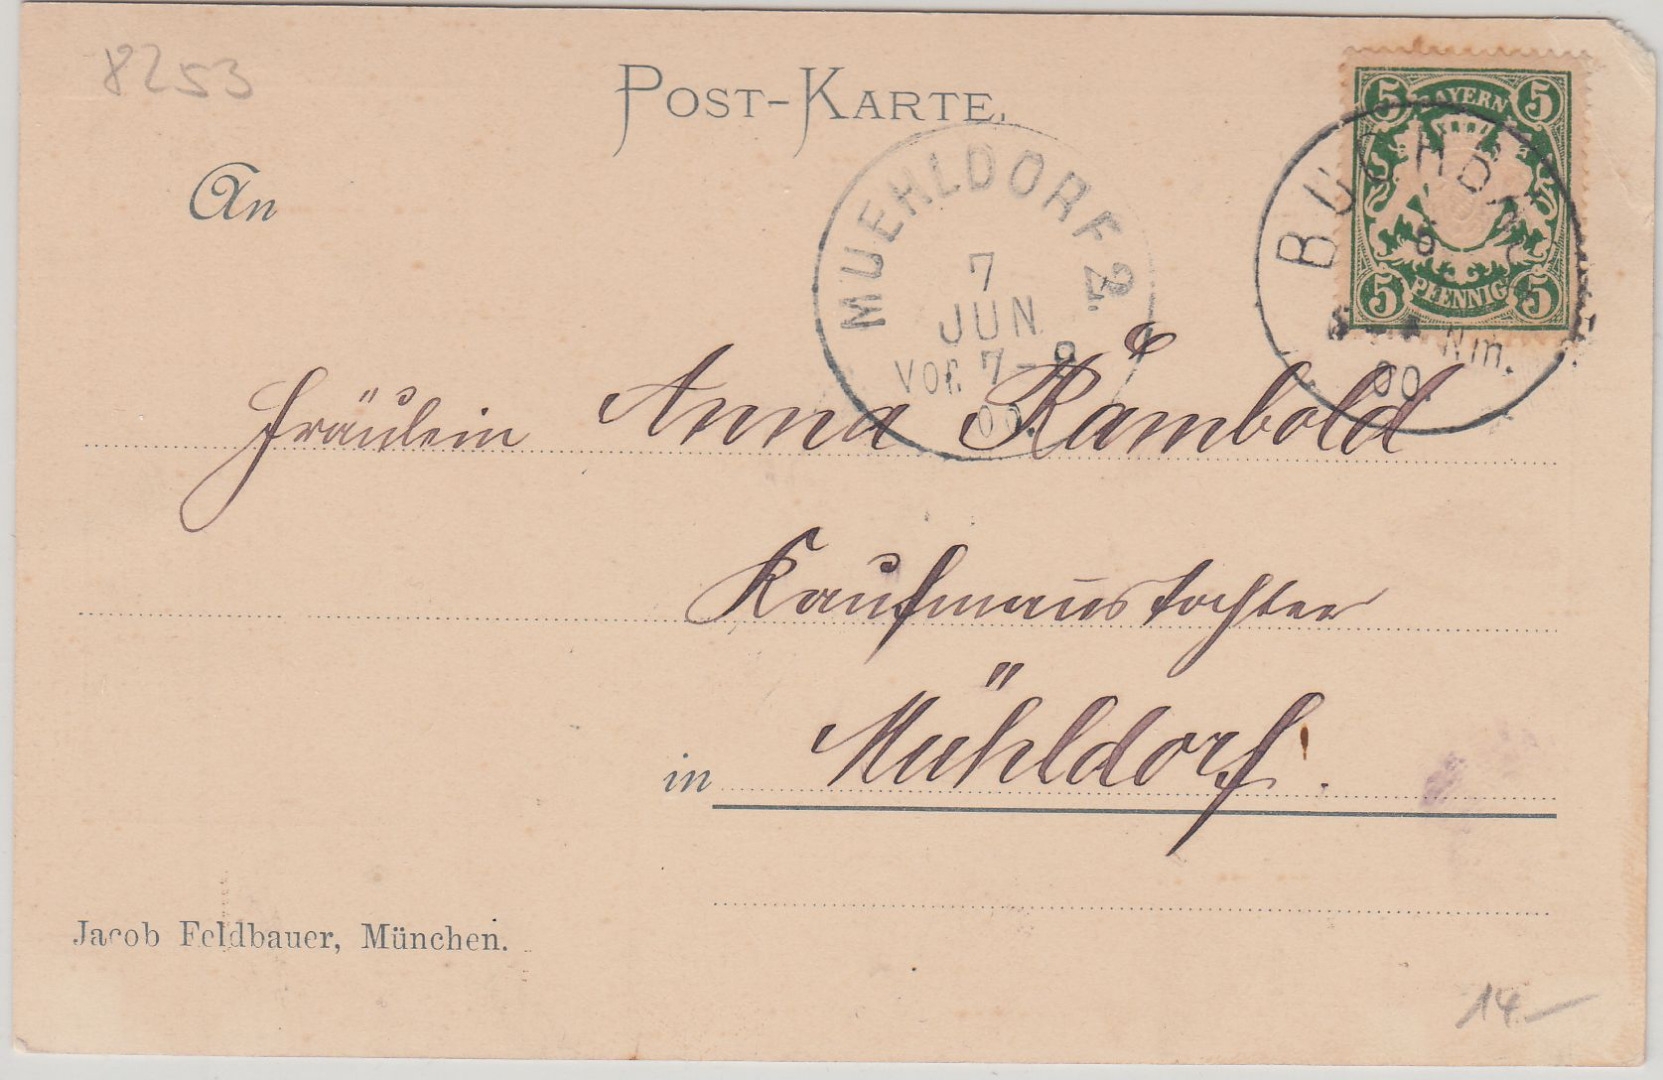 8253
POST-KARTE.
BAYERN
5 5
PFENNIG
5 5
BUCHBACH
6
Nm.
00
MUEHLDORF 2.
7
JUN
Vor. 7-8
00.
An
Fräulein Anna Rambold
Kaufmannstochter
in Mühldorf.
Jacob Feldbauer, München.
14.—